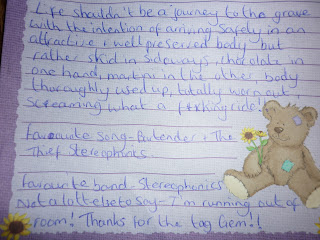 Life shouldn't be a journey to the grave
with the intention of arriving safely in an
attractive & well preserved body but
rather skid in sideways, chocolate in
one hand, martini in the other, body
thoroughly used up, totally worn out,
screaming what a f**king ride!!
Favourite Song - Bartender & The
Thief Stereophonics
Favourite band - Stereophonics
Not a lot else to say - I'm running out of
room! Thanks for the tag Gem!!